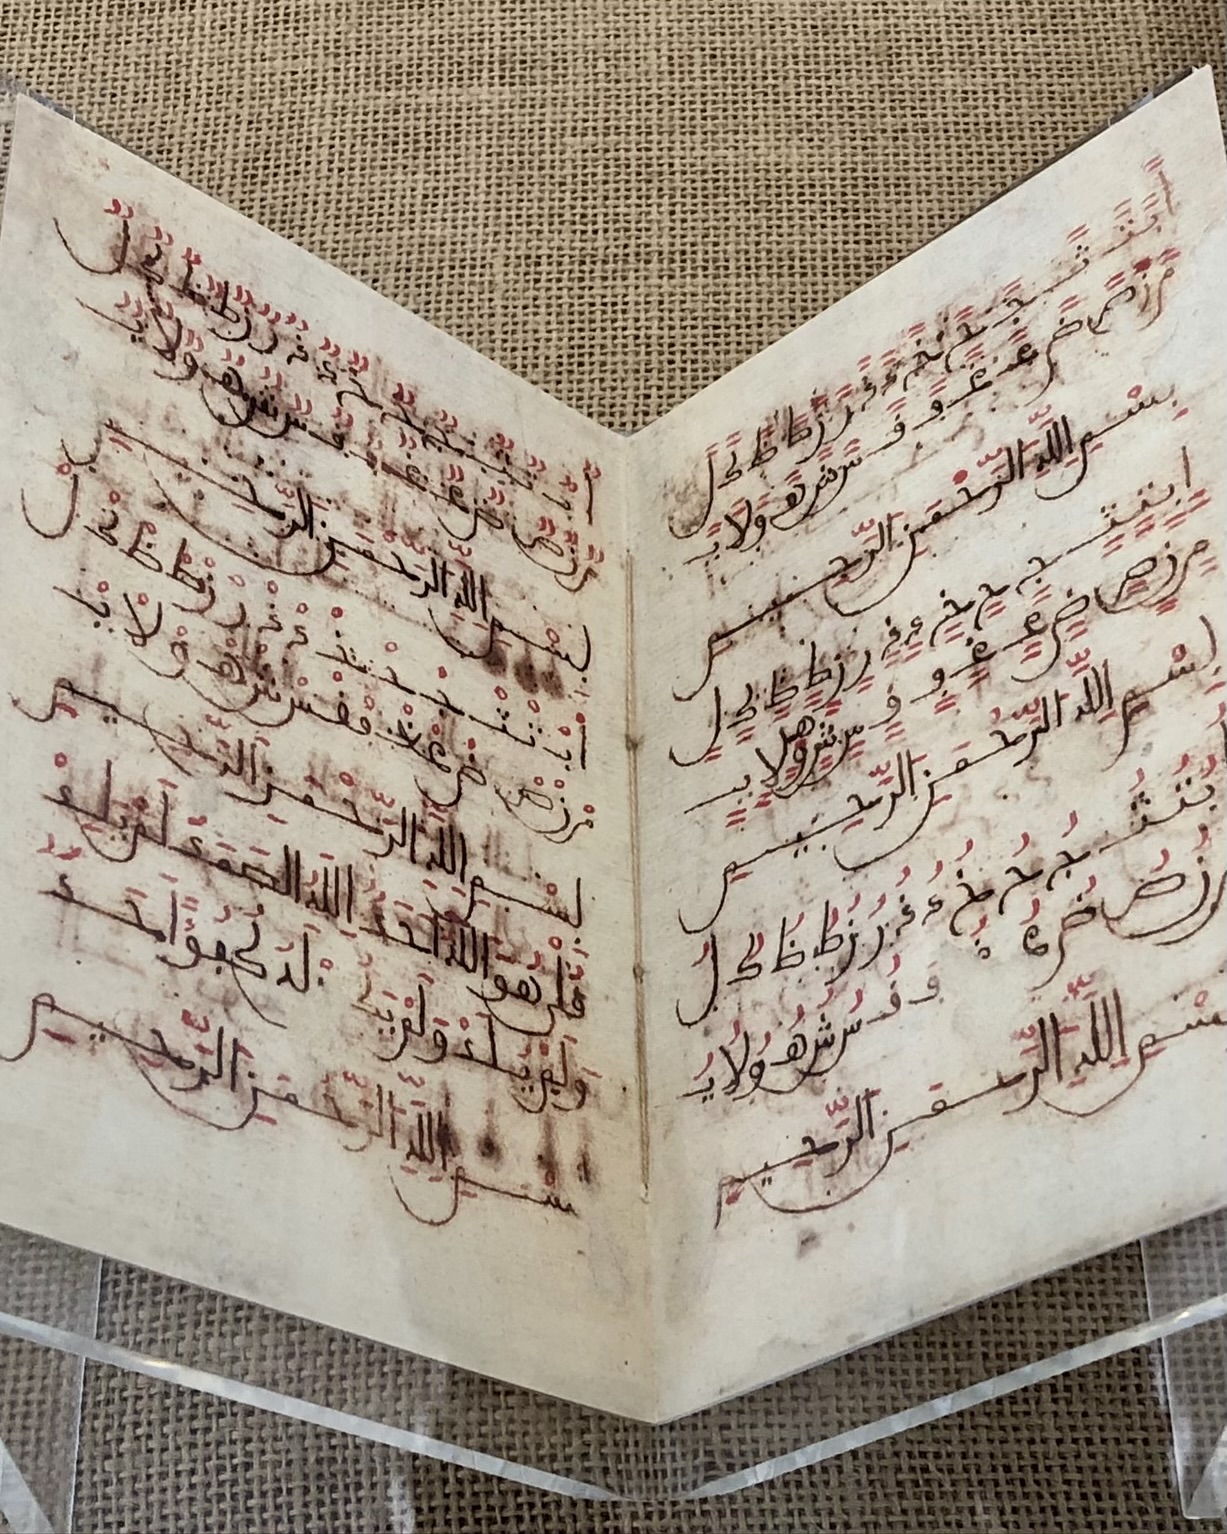 ا ب ت ث ج ح خ د ذ ر ز ط ظ ك ل
م ن ص ض ع غ ف ق س ش ه و لا ي
بسم الله الرحمن الرحيم
ا ب ت ث ج ح خ د ذ ر ز ط ظ ك ل
م ن ص ض ع غ ف ق س ش ه و لا ي
بسم الله الرحمن الرحيم
ا ب ت ث ج ح خ د ذ ر ز ط ظ ك ل
م ن ص ض ع غ
ف ق س ش ه و لا ي
بسم الله الرحمن الرحيم
ا ب ت ث ج ح خ د ذ ر ز ط ظ ك ل
م ن ص ض ع غ ف ق س ش ه و لا ي
بسم الله الرحمن الرحيم
ا ب ت ث ج ح خ د ذ ر ز ط ظ ك ل
م ن ص ض ع غ ف ق س ش ه و لا ي
بسم الله الرحمن الرحيم
قل هو الله احد الله الصمد لم يلد
ولم يولد ولم يكن له كفؤا احد
بسم الله الرحمن الرحيم